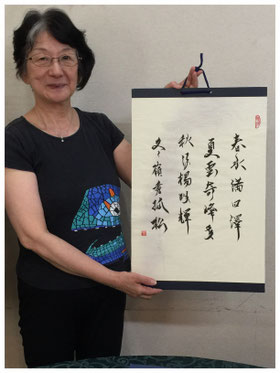 春水満四澤
夏雲奇峰多
秋月揚明輝
冬嶺秀孤松